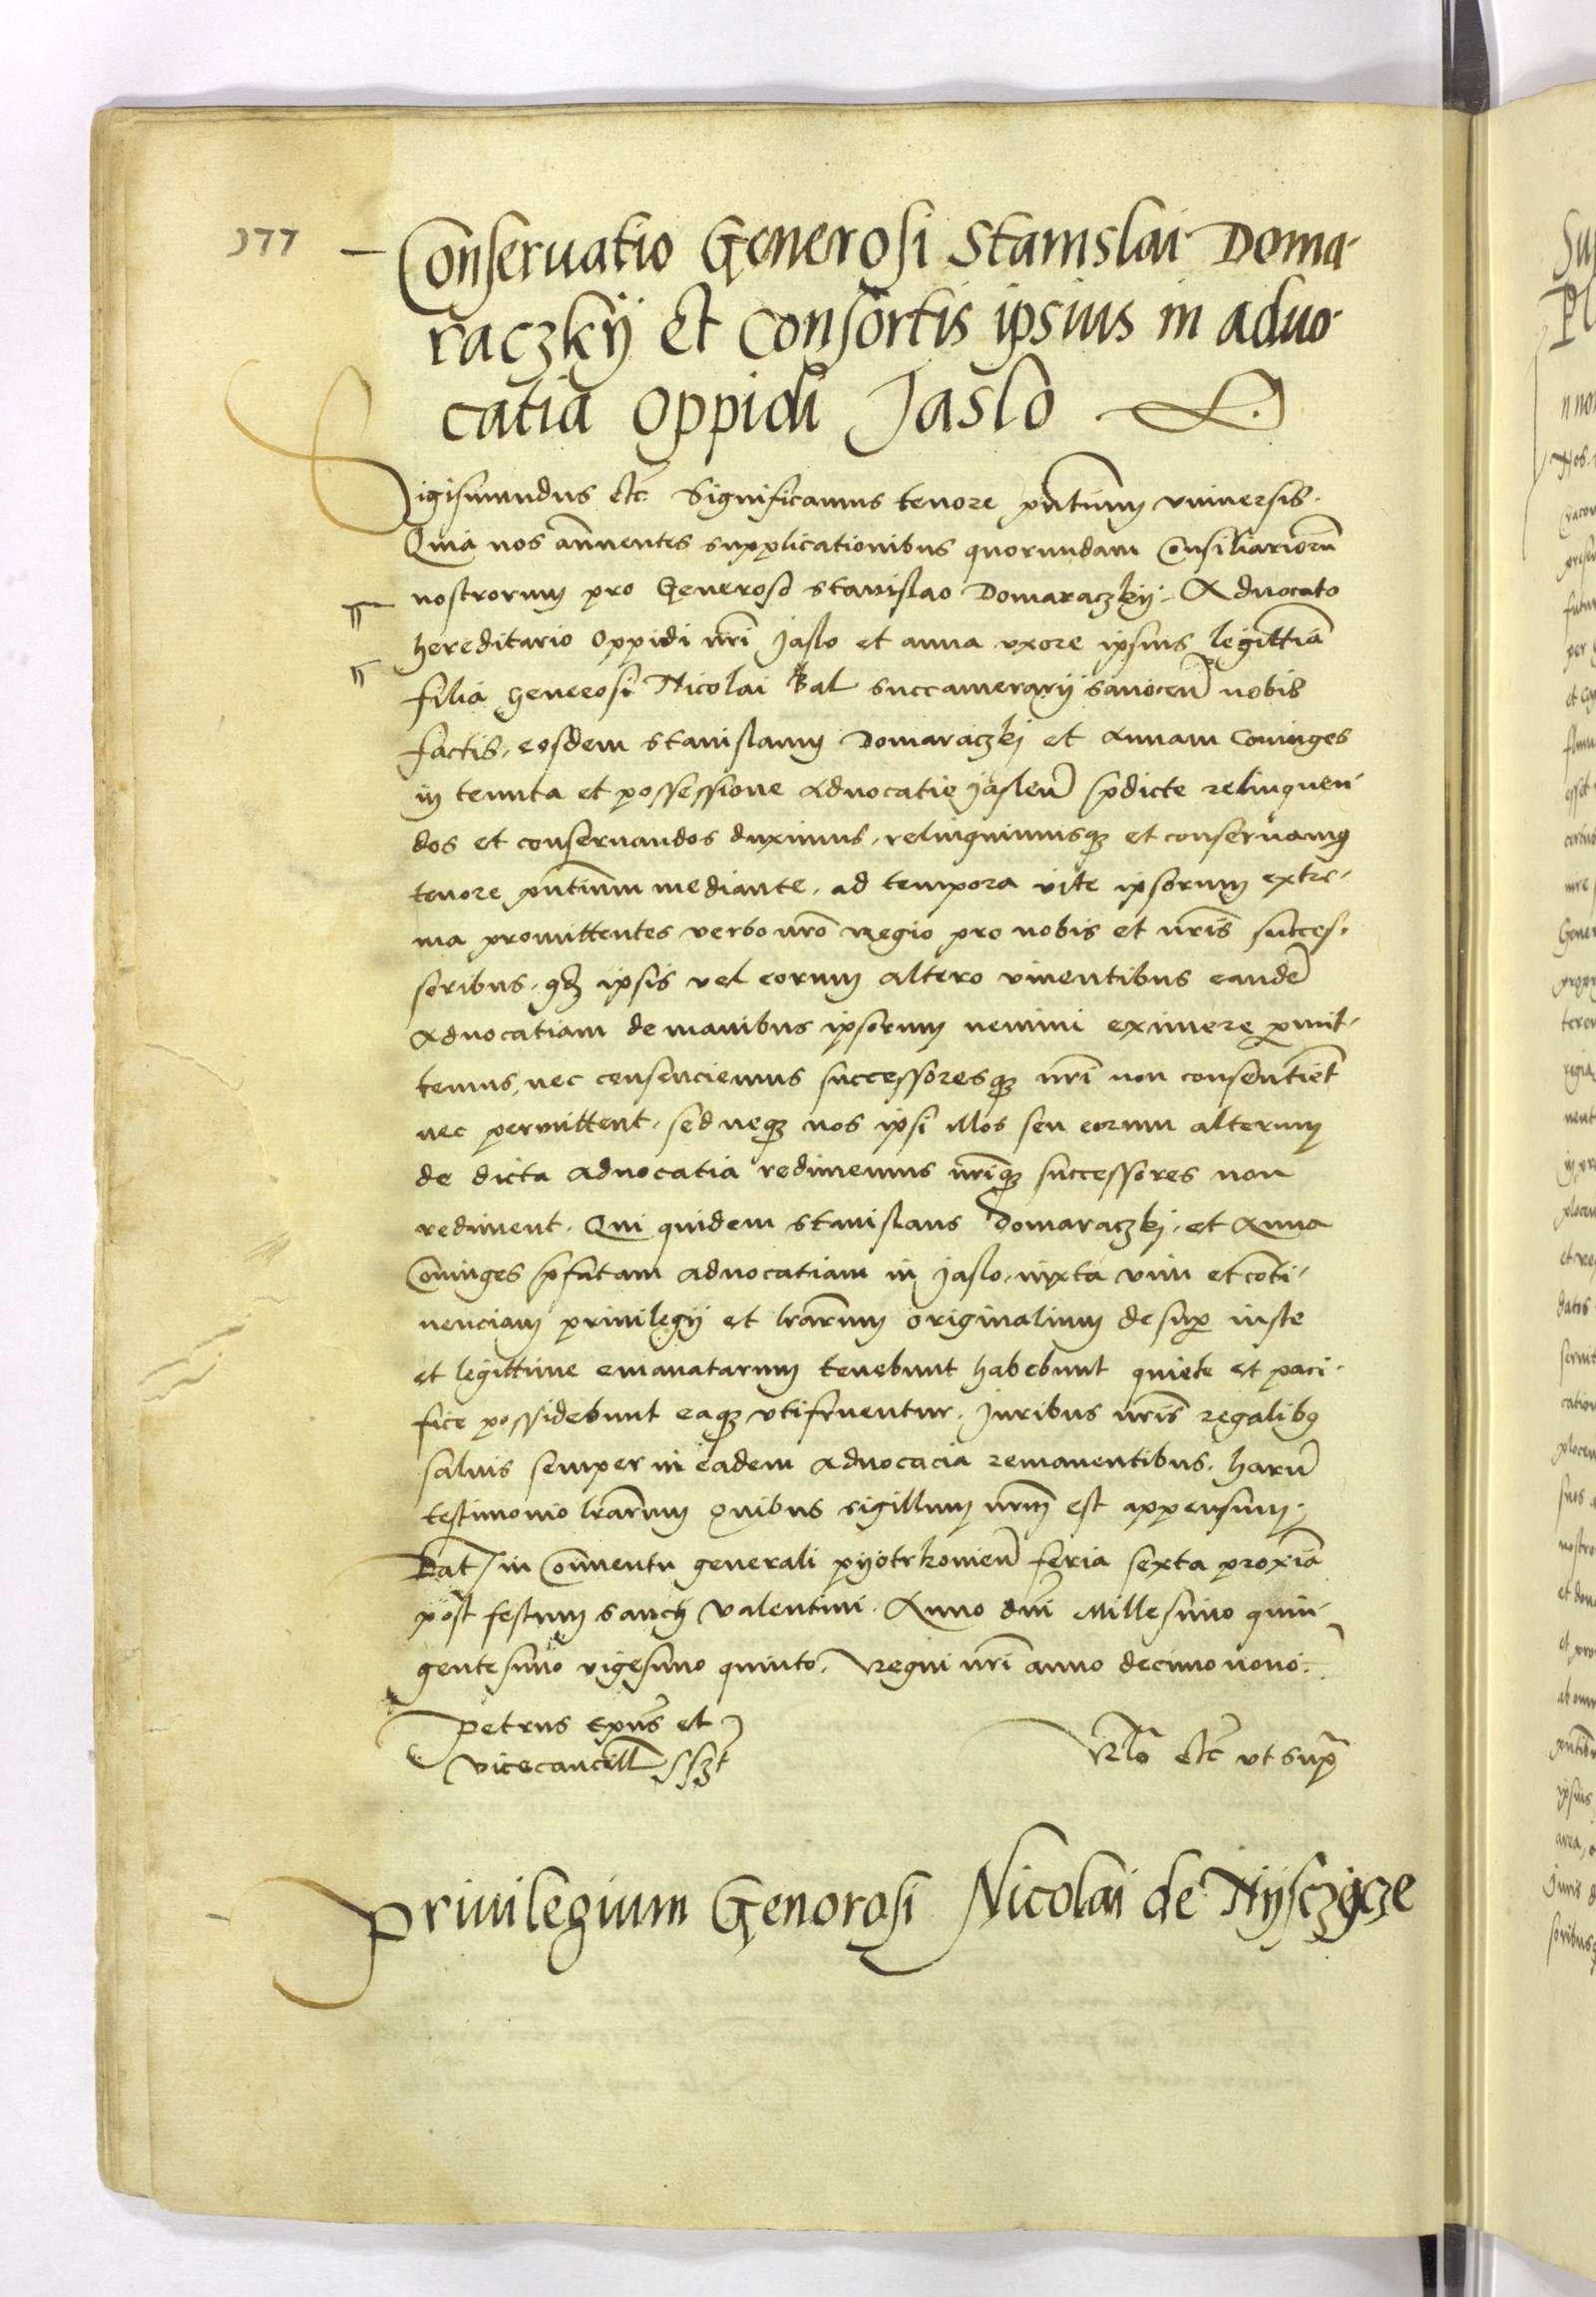 177
Conseruatio Generosi Stanislai Doma-
raczkÿ et Consortis ipsius in aduo-
catia oppidi Jaslo
Sigismundus etc̃ Significamus tenore pñtium vniuersis.
Quia nos añuentes supplicationibus quorundam Consiliariorũ
nostrorum pro Generoso Stanislao Domaraczkÿ Aduocato
hereditario oppidi nr̃i Jaslo et anna vxore ipsius legittiã
filia generosi Nicolai Bal succamerarij sanoceñ nobis
factis, eosdem Stanislaum Domaraczkj et Annam Coniuges
in tenuta et possessione Aduocatie Jasleñ p̃dicte relinquen-
dos et conseruandos duximus, relinquimusqȝ et conseruamꝰ
tenore pñtium mediante, ad tempora vite ipsorum extre-
ma promittentes verbo nr̃o Regio pro nobis et nr̃is succes-
soribus, qđ ipsis vel eorum altero viuentibus eandẽ
Aduocatiam de manibus ipsorum nemini eximere ꝑmit-
temus, nec consenciemus successoresqȝ nr̃i non consentiẽt
nec permittent, sed neqȝ nos ipsi illos seu eorum alterum
de dicta aduocatia redimemus nr̃iqȝ successores non
rediment. Qui quidem Stanislaus Domaraczkj et Anna
Coniuges p̃fatam aduocatiam in Jaslo, iuxta vim et cõti-
nenciam priuilegij et lr̃arum originalium desuꝑ iuste
et legittime emanatarum tenebunt habebunt quiete et paci-
fice possidebunt eaqȝ vtifruentur. Juribus nr̃is regalibꝰ
saluis semper in eadem aduocacia remanentibus. Harũ
testimonio lr̃arum quibus sigillum nr̃m est appensum.
Dat̃ in Conuentu generali pyotrkouieñ feria sexta proxiã
post festum sancti Valentini. Anno dñi Millesimo quin-
gentesimo vigesimo quinto. Regni nr̃i anno decimonono.
Petrus Ep̃us et
vicecancell̃ sszt
Rl̃o etc̃ vt supª
Priuilegium Genorosi Nicolai de Nÿsczÿcze